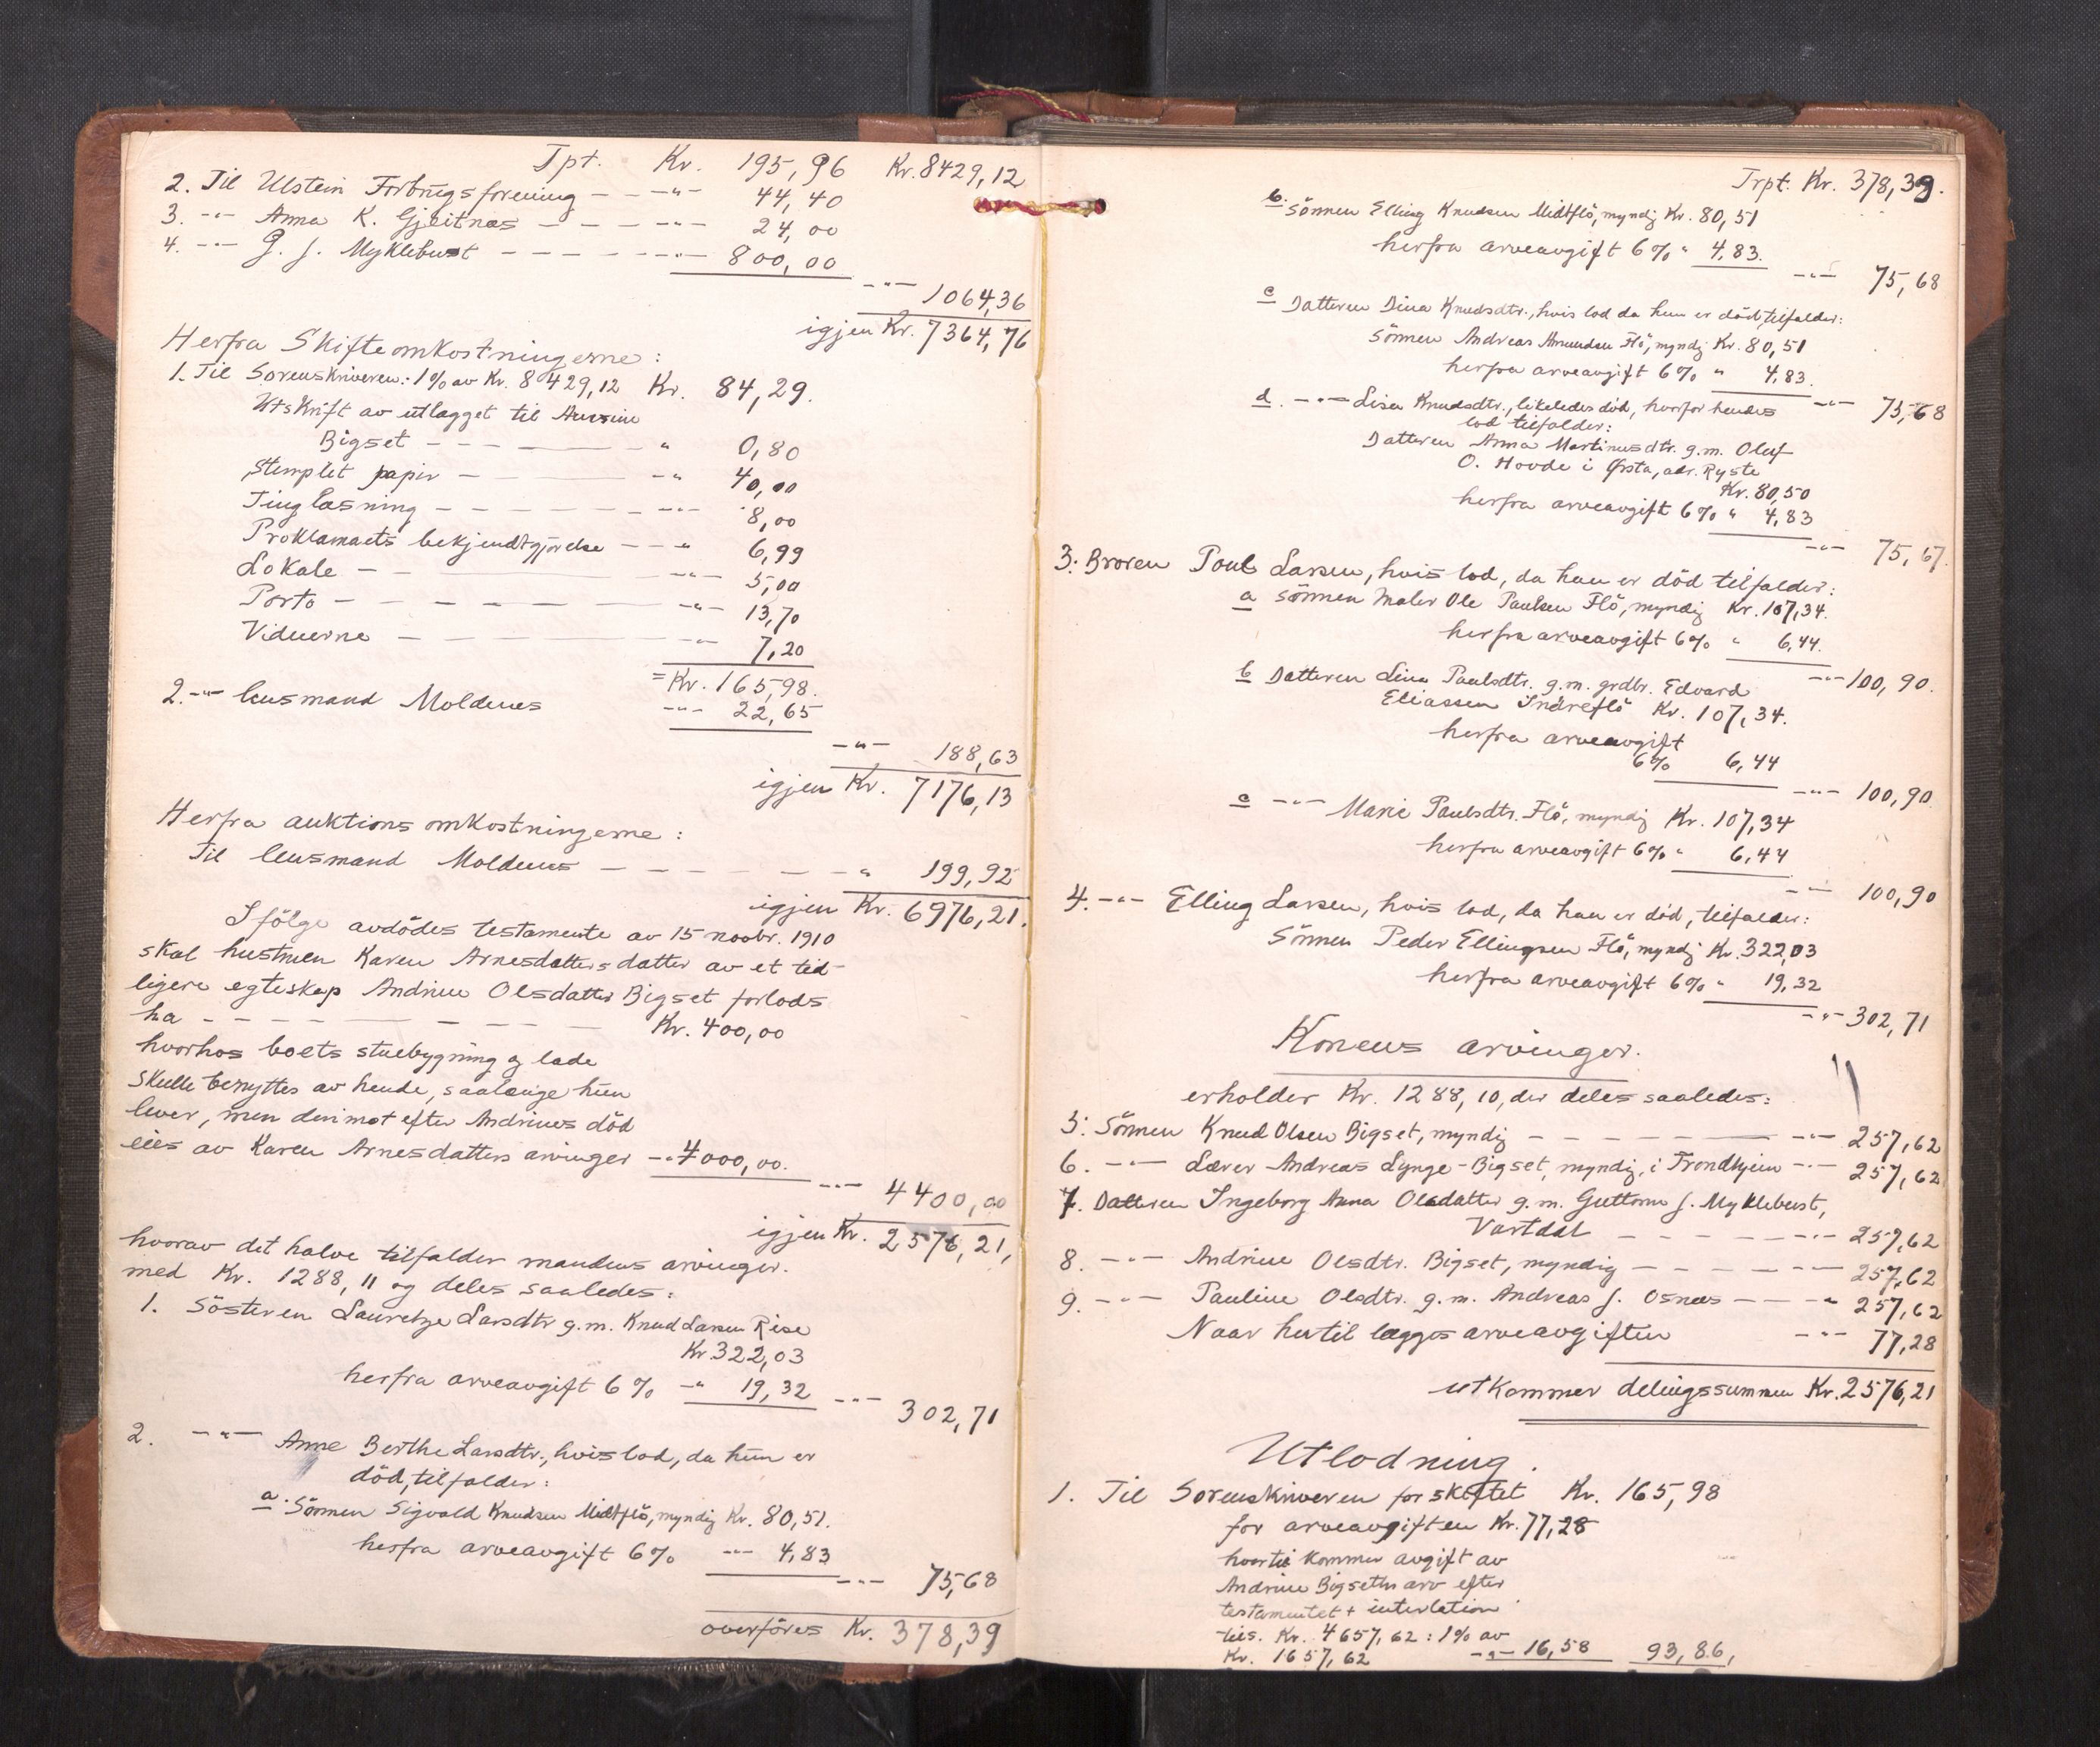 Tpt. Kr. 195,96 Kr. 8429,12
2. Til Ulstein Forbrugsforening — — -"- 44,40
3. -"- Anna K. Gjeitnes — — — — -"- 24,00
4. -"- G. J. Myklebust — — — — -"- 800,00
-"- 1064,36
igjen Kr. 7364,76
Herfra Skifteomkostningerne:
1. Til Sorenskriveren: 1% av Kr. 8429,12 Kr. 84,29.
Utskrift av utlægget til
Bigset — — — " 0,80
Stemplet papir — — -" 40,00
Tinglæsning — — — — -"- 8,00
Proklamaets bekjendtgjørelse — — " 6,99
Lokale — — -"- 5,00
Porto — — — — — -"- 13,70
Viduerne — — -"- 7,20
= Kr. 165,98.
2. -"- lensmand Moldenes -"- 22,65
-"- 188,63
igjen Kr. 7176,13
Herfra auktionsomkostningerne:
Til lensmand Moldenes — — — — — " 199,92
igjen Kr. 6976,21.
Ifölge avdödes testamente av 15 novbr. 1910
skal hustruen Karen Arnesdatters datter av et tid-
ligere egteskap Andrine Olsdatter Bigset forlods
ha — — — — — — — Kr. 400,00
hvorhos boets stuebygning og lade
skulle benyttes av hende, saalænge hun
lever, men derimot efter Andrines död
eies av Karen Arnesdatters arvinger -"- 4000,00.
-"- 4400,00
igjen Kr. 2576,21,
hvorav det halve tilfalder mandens arvinger.
med Kr. 1288,11 og deles saaledes:
1. Sösteren Lauretze Larsdtr g.m. Knud Larsen Rise
Kr 322,03
herfra arveavgift 6% -" 19,32 -"- 302,71
2. -"- Anne Berthe Larsdtr., hvis lod, da hun er
död, tilfalder:
a. Sönnen Sigvald Knudsen Midtflö, myndig Kr. 80,51.
herfra arveavgift 6% -"- 4,83
-"- 75,68
overföres Kr. 378,39
Trpt. Kr. 378,39.
b. Sönnen Elling Knudsen Midtflö, myndig Kr. 80,51
herfra arveavgift 6% " 4,83.
-"- 75,68
c Datteren Dina Knudsdtr., hvis lod da hun er död, tilfalder:
Sönnen Andreas Amundsen Flö, myndig Kr. 80,51
herfra arveavgift 6% " 4,83.
-"- 75,68
d. -"- Lisa Knudsdtr., likeledes död, hvorfor hendes
lod tilfalder:
Datteren Anna Martinusdtr. g.m. Oluf
O. Hovde i Ørsta, adr. Ryste
Kr. 80,50
herfra arveavgift 6% " 4,83
-"- 75,67.
3: Broren Poul Larsen, hvis lod, da han er död tilfalder:
a sönnen maler Ole Paulsen Flö, myndig Kr. 107,34.
herfra arveavgift 6% " 6,44.
-"- 100,90.
b Datteren Lina Paulsdtr. g.m. grdbr. Edvard
Eliassen Indreflö Kr. 107,34.
herfra arveavgift
6% 6,44
-"- 100,90.
c -"- Marie Paulsdtr. Flö, myndig Kr. 107,34
herfra arveavgift 6% " 6,44
-"- 100,90
4. -"- Elling Larsen, hvis lod, da han er död, tilfalder:
Sönnen Peder Ellingsen Flö, myndig Kr. 322,03
herfra arveavgift 6% " 19,32
-"- 302,71
Konens arvinger.
erholder Kr. 1288,10, der deles saaledes:
5: Sönnen Knud Olsen Bigset, myndig — — — — -"- 257,62
6. -"- Lærer Andreas Lynge-Bigset, myndig, i Trondhjem -"- 257,62
7. Datteren Ingeborg Anna Olsdatter g.m. Guttorm J. Myklebust,
Vartdal — — — — -"- 257,62
8. -"- Andrine Olsdtr. Bigset, myndig — — — -"- 257,62
9. -"- Pauline Olsdtr. g.m. Andreas J. Osnes — — " 257,62
Naar hertil lægges arveavgiften -"- 77,28
utkommer delingssummen Kr. 2576,21
Utlodning.
1. Til Sorenskriveren for skiftet Kr. 165,98
for arveavgiften Kr. 77,28
hvortil kommer avgift av
Andrine Bigseths arv efter
testamentet +
Kr. 4657,62: 1% av
Kr. 1657,62 -"- 16,58 93,86,